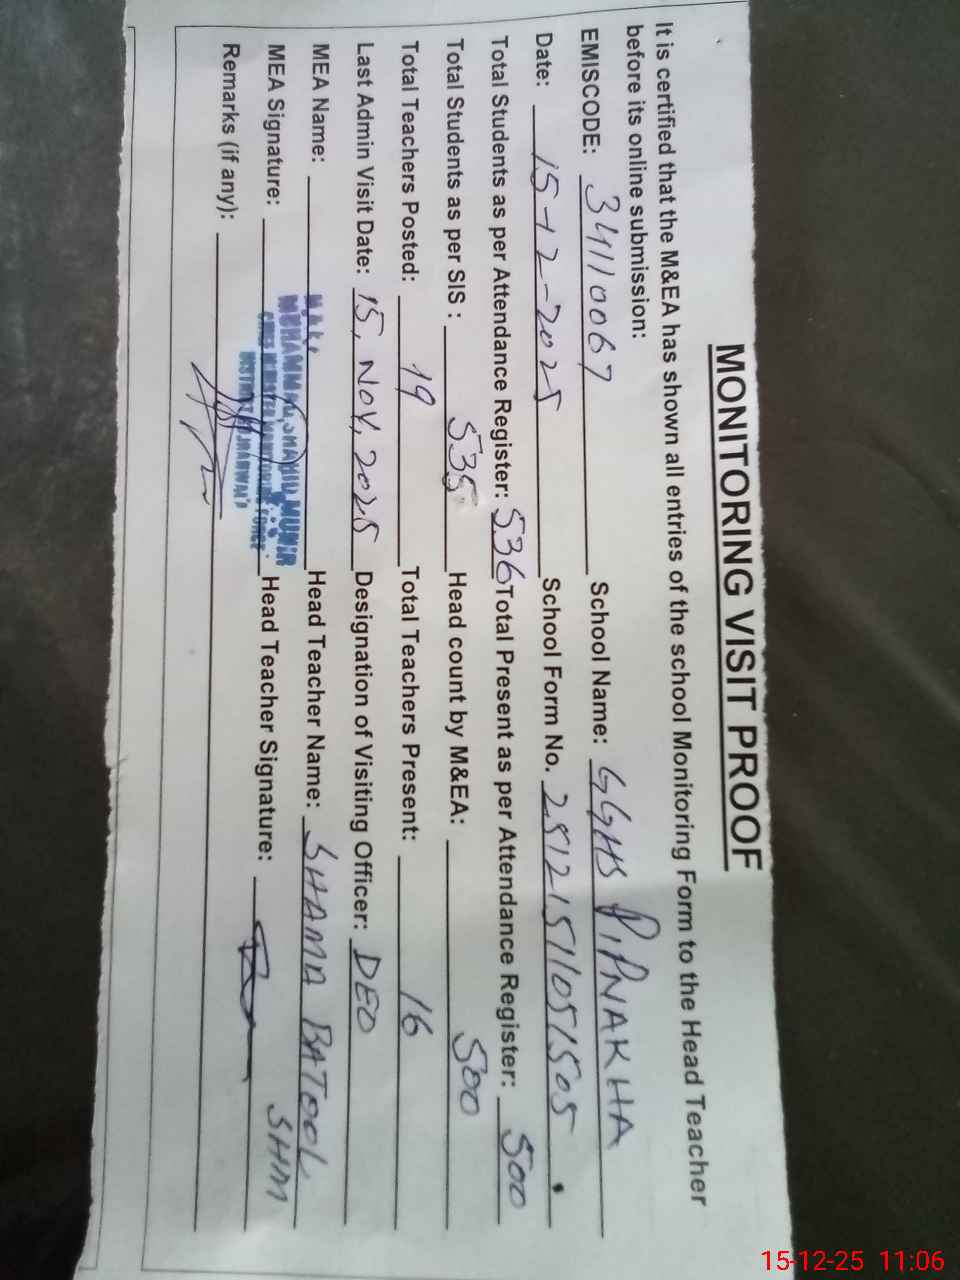 MONITORING VISIT PROOF
It is certified that the M&EA has shown all entries of the school Monitoring Form to the Head Teacher
before its online submission:
EMISCODE: 34110067 School Name: GGHS PIPNAKHA
Date: 15-12-2025 School Form No. 28121511051505
Total Students as per Attendance Register: 536 Total Present as per Attendance Register: 500
Total Students as per SIS : 535 Head count by M&EA: 500
Total Teachers Posted: 19 Total Teachers Present: 16
Last Admin Visit Date: 15, NOV, 2025 Designation of Visiting Officer: DEO
MEA Name: MUHAMMAD SHAHID MUNIR Head Teacher Name: SHAMA BATOOL
MEA Signature: CHIEF MINISTER MONITORING FORCE Head Teacher Signature: SHM
DISTRICT
Remarks (if any):
15-12-25 11:06